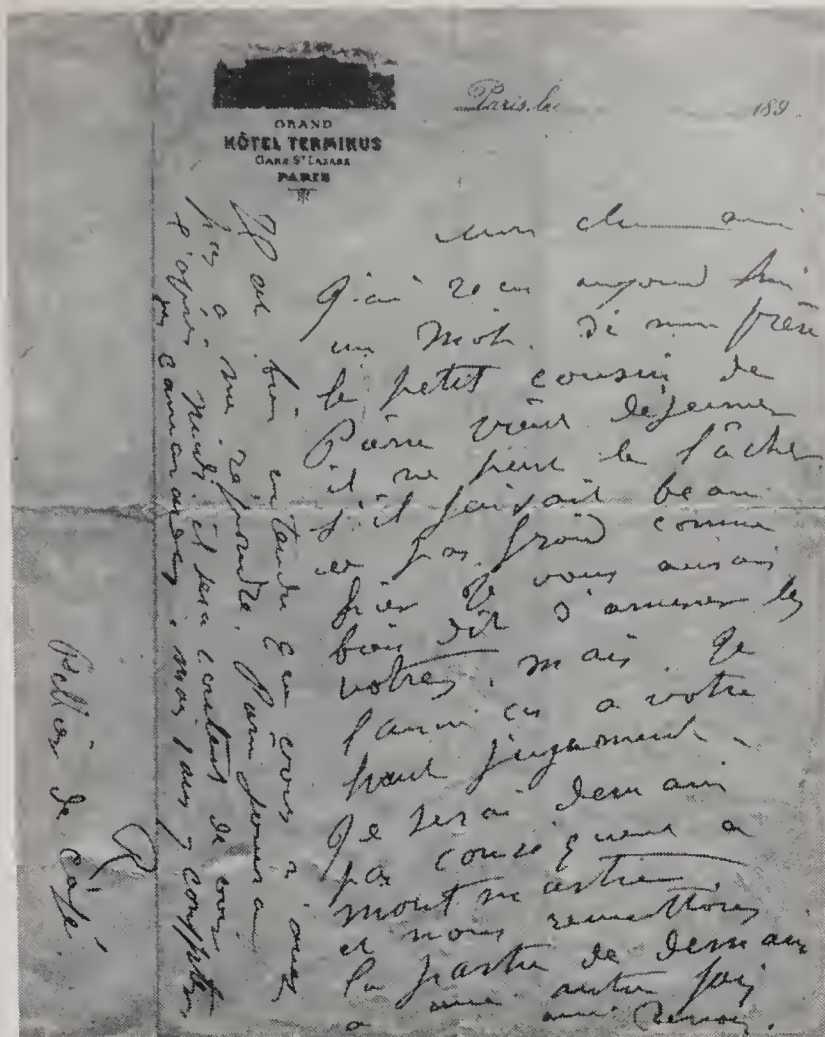 GRAND
HÔTEL TERMINUS
GARE ST LAZARE
PARIS
Paris, le 189
mon cher ami
J'ai reçu aujourd'hui
un mot de mon frère
le petit cousin de
Pierre vient déjeuner
il ne peut le lâcher
s'il faisait beau
et pas froid comme
hier je vous aurais
bien dit d'amener les
votres, mais je
haut jugement
Je serai demain
par conséquent a
montmartre
et nous remettrons
la partie de demain
a une autre fois
ami Renoir.
Il est bien entendu que vous n'avez
pas a me répondre.
l'après midi il sera content de voir
ses camarades, mais sans y compter
R